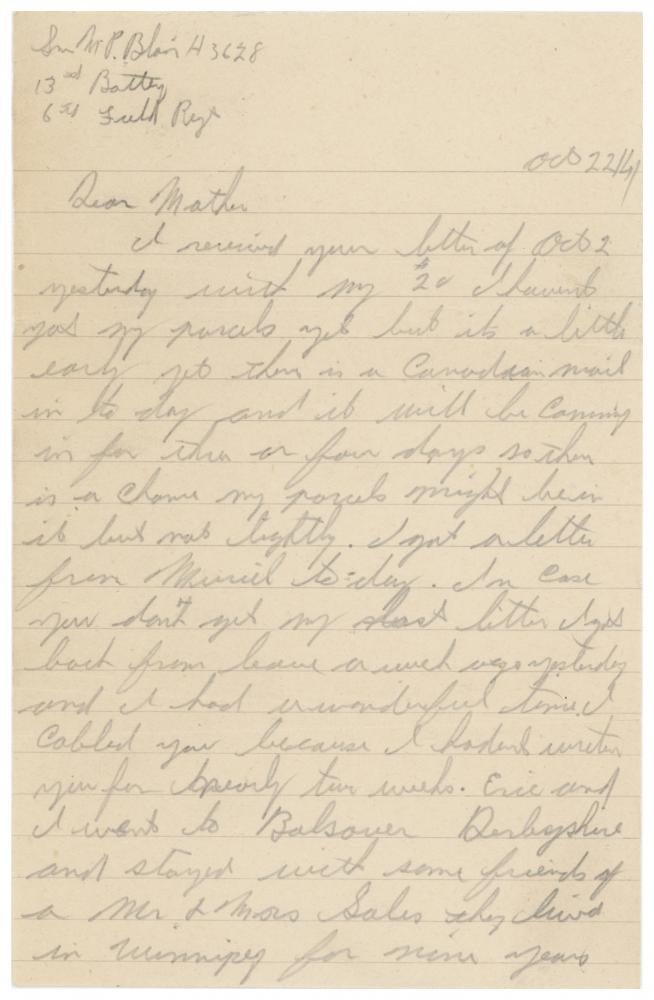 Gnr M P. Blair H 3628
13th Battery
6th Field Regt
Oct 22/41
Dear Mother
I received your letter of Oct 2
yesterday with my $2. I havent
got my parcels yet but its a little
early yet there is a Canadian mail
in to day and it will be coming
in for three or four days so there
is a chance my parcels might be in
it but not lightly. I got a letter
from Muriel to-day. In case
you don't get my last letter I got
back from leave a week ago yesterday
and I had a wonderful time. I
Cabled you because I hadent writen
you for nearly two weeks. Eric and
I went to Bolsover Derbyshire
and stayed with some friends of
a Mr & Mrs Sales they lived
in Winnipeg for nine years